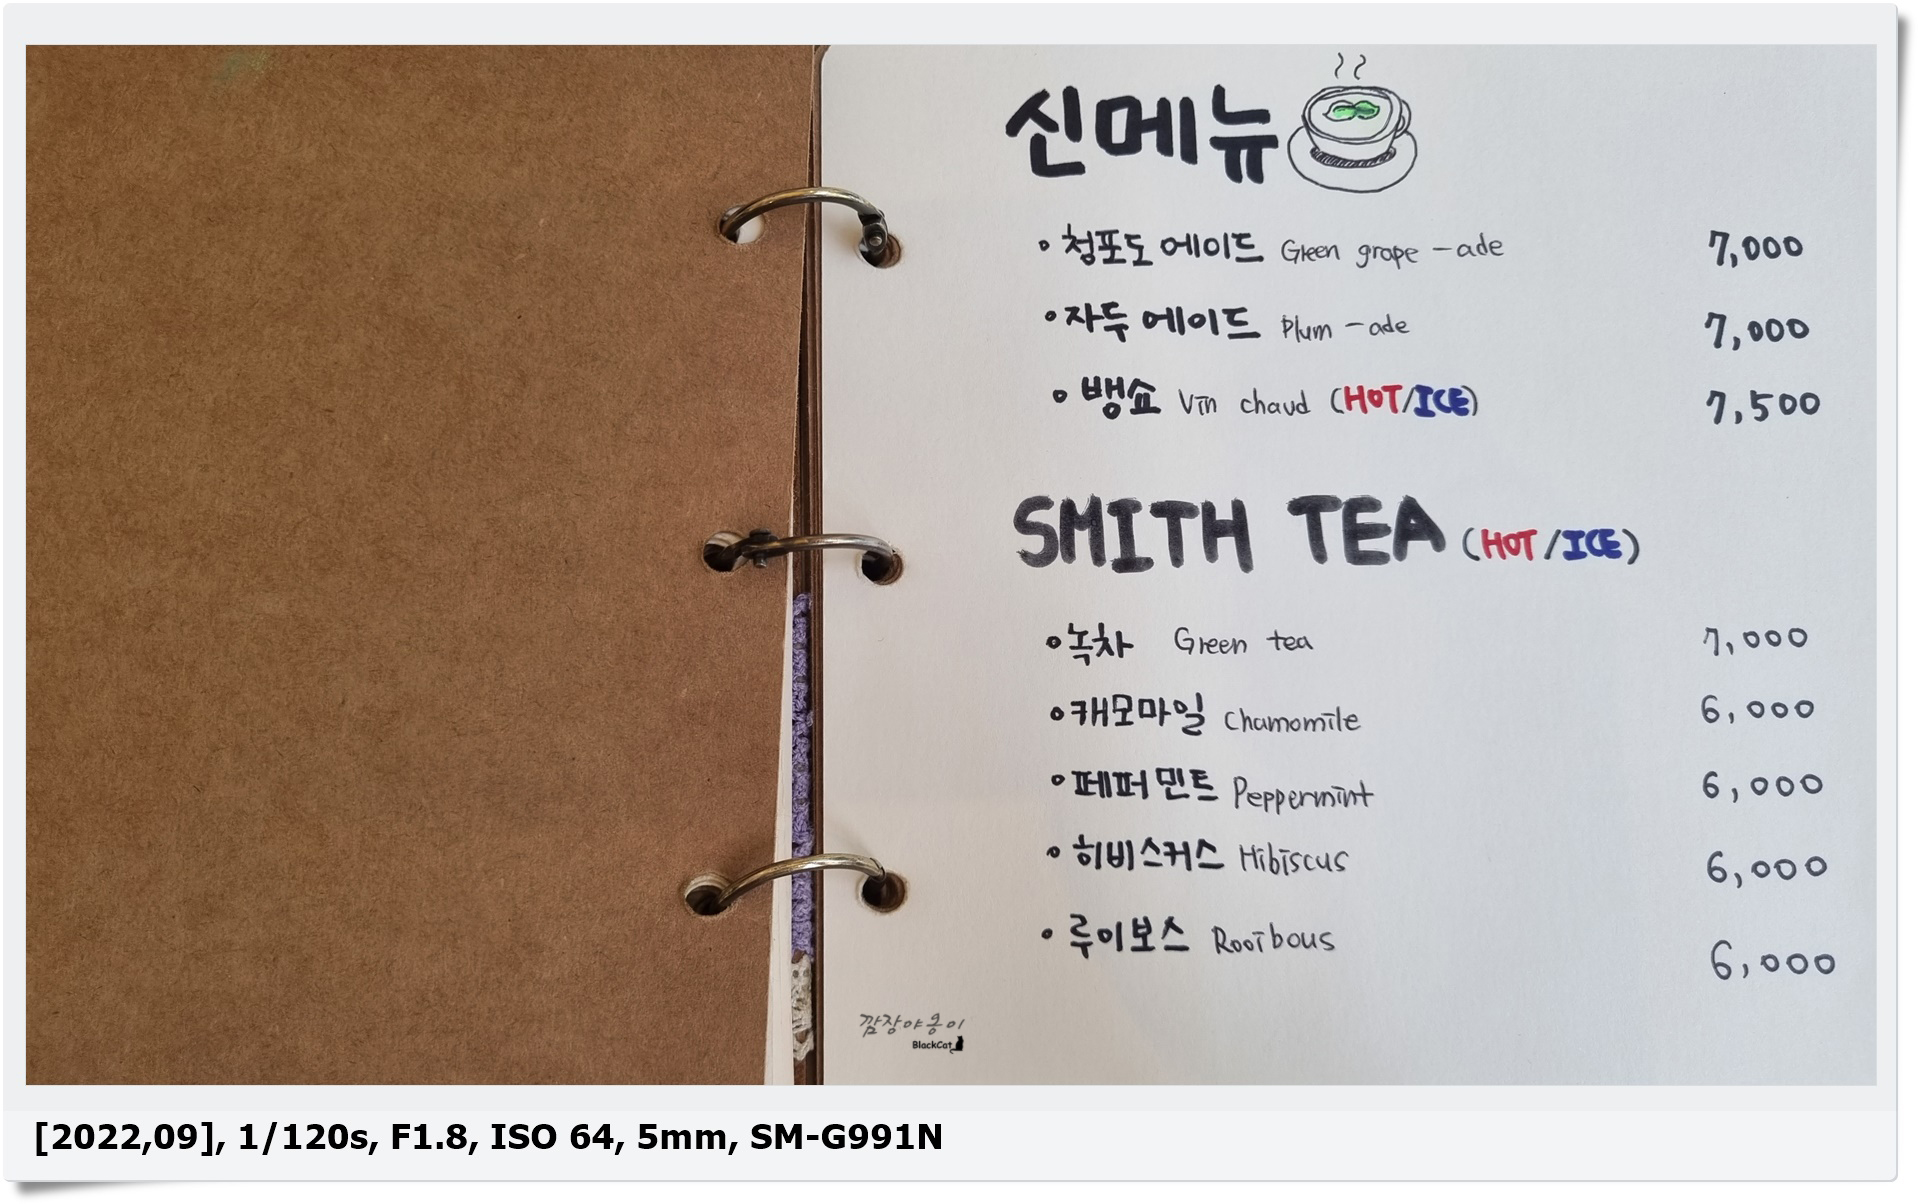 신메뉴
• 청포도 에이드 Green grape -ade 7,000
• 자두 에이드 Plum -ade 7,000
• 뱅쇼 Vin chaud (HOT/ICE) 7,500
SMITH TEA (HOT/ICE)
• 녹차 Green tea 7,000
• 캐모마일 Chamomile 6,000
• 페퍼민트 Peppermint 6,000
• 히비스커스 Hibiscus 6,000
• 루이보스 Rooibous 6,000
깜장야옹이
BlackCat
[2022,09], 1/120s, F1.8, ISO 64, 5mm, SM-G991N